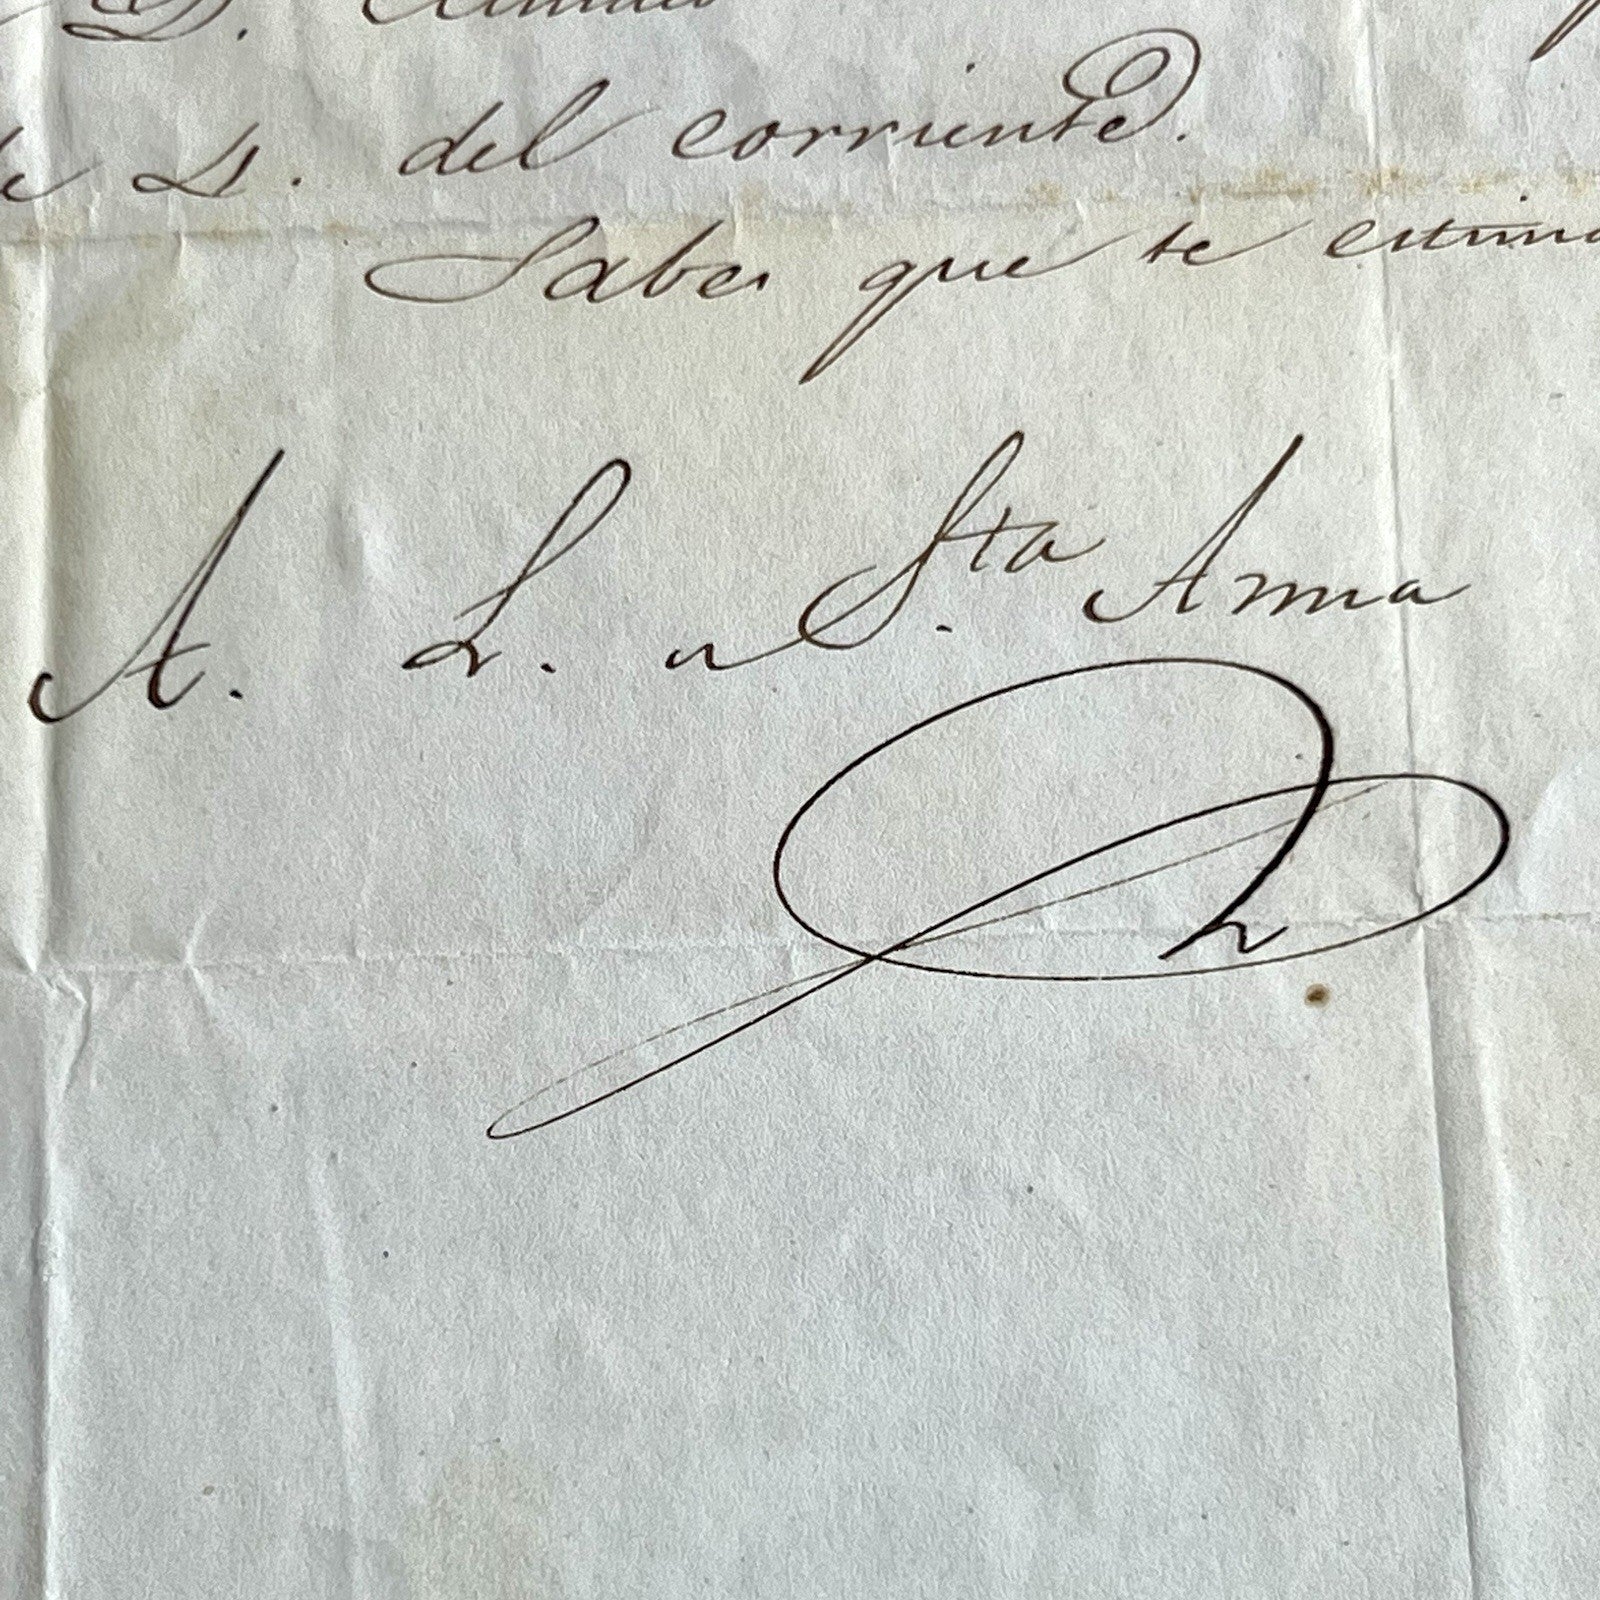 del corriente.
Saber que te estima
A. L. de Sta. Anna